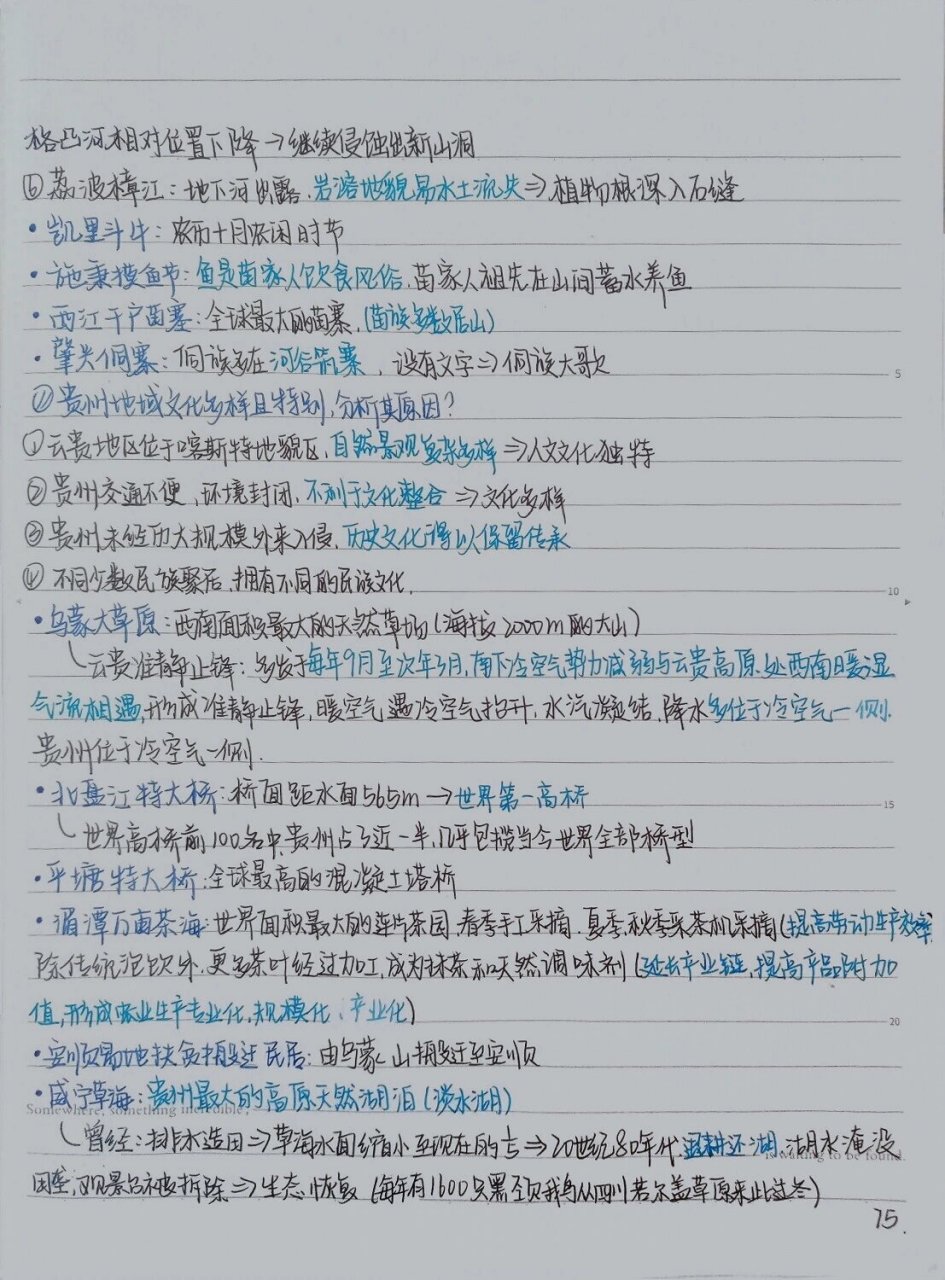 格凸河相对位置下降→继续侵蚀出新山洞
⑥荔波樟江：地下河出露，岩溶地貌易水土流失⇒植物根深入石缝
·凯里斗牛：农历十月农闲时节
·施秉摸鱼节：鱼是苗家人饮食风俗，苗家人祖先在山间蓄水养鱼
·西江千户苗寨：全球最大的苗寨，(苗族多数居山)
·肇兴侗寨：侗族多在河谷筑寨，没有文字⇒侗族大歌
贵州地域文化多样且特别，分析其原因？
5
①云贵地区位于喀斯特地貌区，自然景观复杂多样⇒人文文化独特
②贵州交通不便，环境封闭，不利于文化整合⇒文化多样
③贵州未经历大规模外来入侵，历史文化得以保留传承
④不同少数民族聚居，拥有不同的民族文化.
10
·乌蒙大草原：西南面积最大的天然草场(海拔2000m的大山)
云贵准静止锋：多发于每年9月至次年3月，南下冷空气势力减弱与云贵高原处西南暖湿
气流相遇，形成准静止锋，暖空气遇冷空气抬升，水汽凝结，降水多位于冷空气一侧.
贵州位于冷空气一侧.
·北盘江特大桥：桥面距水面565m→世界第一高桥
15
世界高桥前100名中贵州占了近一半，几乎包揽当今世界全部桥型
·平塘特大桥：全球最高的混凝土塔桥
·湄潭万亩茶海：世界面积最大的连片茶园，春季手工采摘，夏季，秋季采茶机采摘(提高劳动生产效率)
除传统泡饮外，更多茶叶经过加工，成为抹茶和天然调味剂(延长产业链，提高产品附加
值，形成农业生产专业化，规模化，产业化)
20
·安顺易地扶贫搬迁民居：由乌蒙山搬迁至安顺
·威宁草海：贵州最大的高原天然湖泊(淡水湖)
Somewhere, something incredible,
曾经：排水造田⇒草海水面缩小至现在的⇒20世纪80年代，退耕还湖，湖水淹没
is waiting to be found.
田垄，观景台被拆除⇒生态恢复(每年有1600只黑颈鹤鸟从四川若尔盖草原来此过冬)
75.